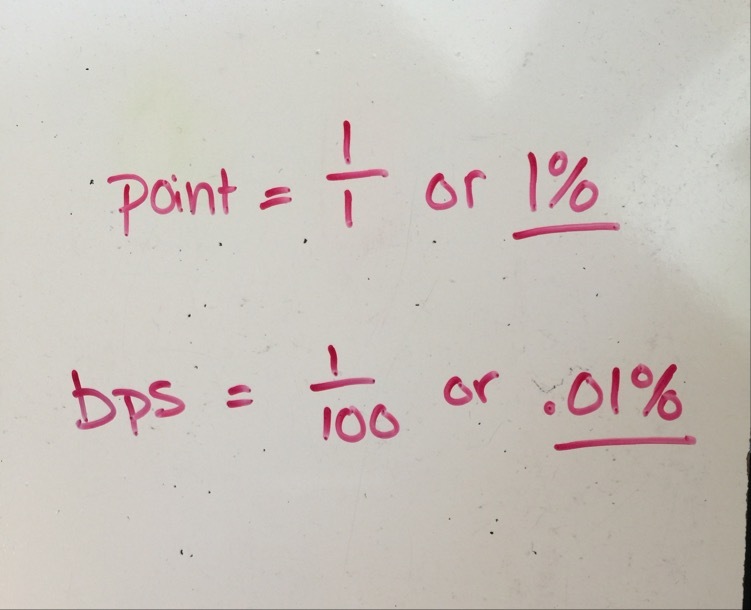 point = 1/1 or 1%
bps = 1/100 or .01%